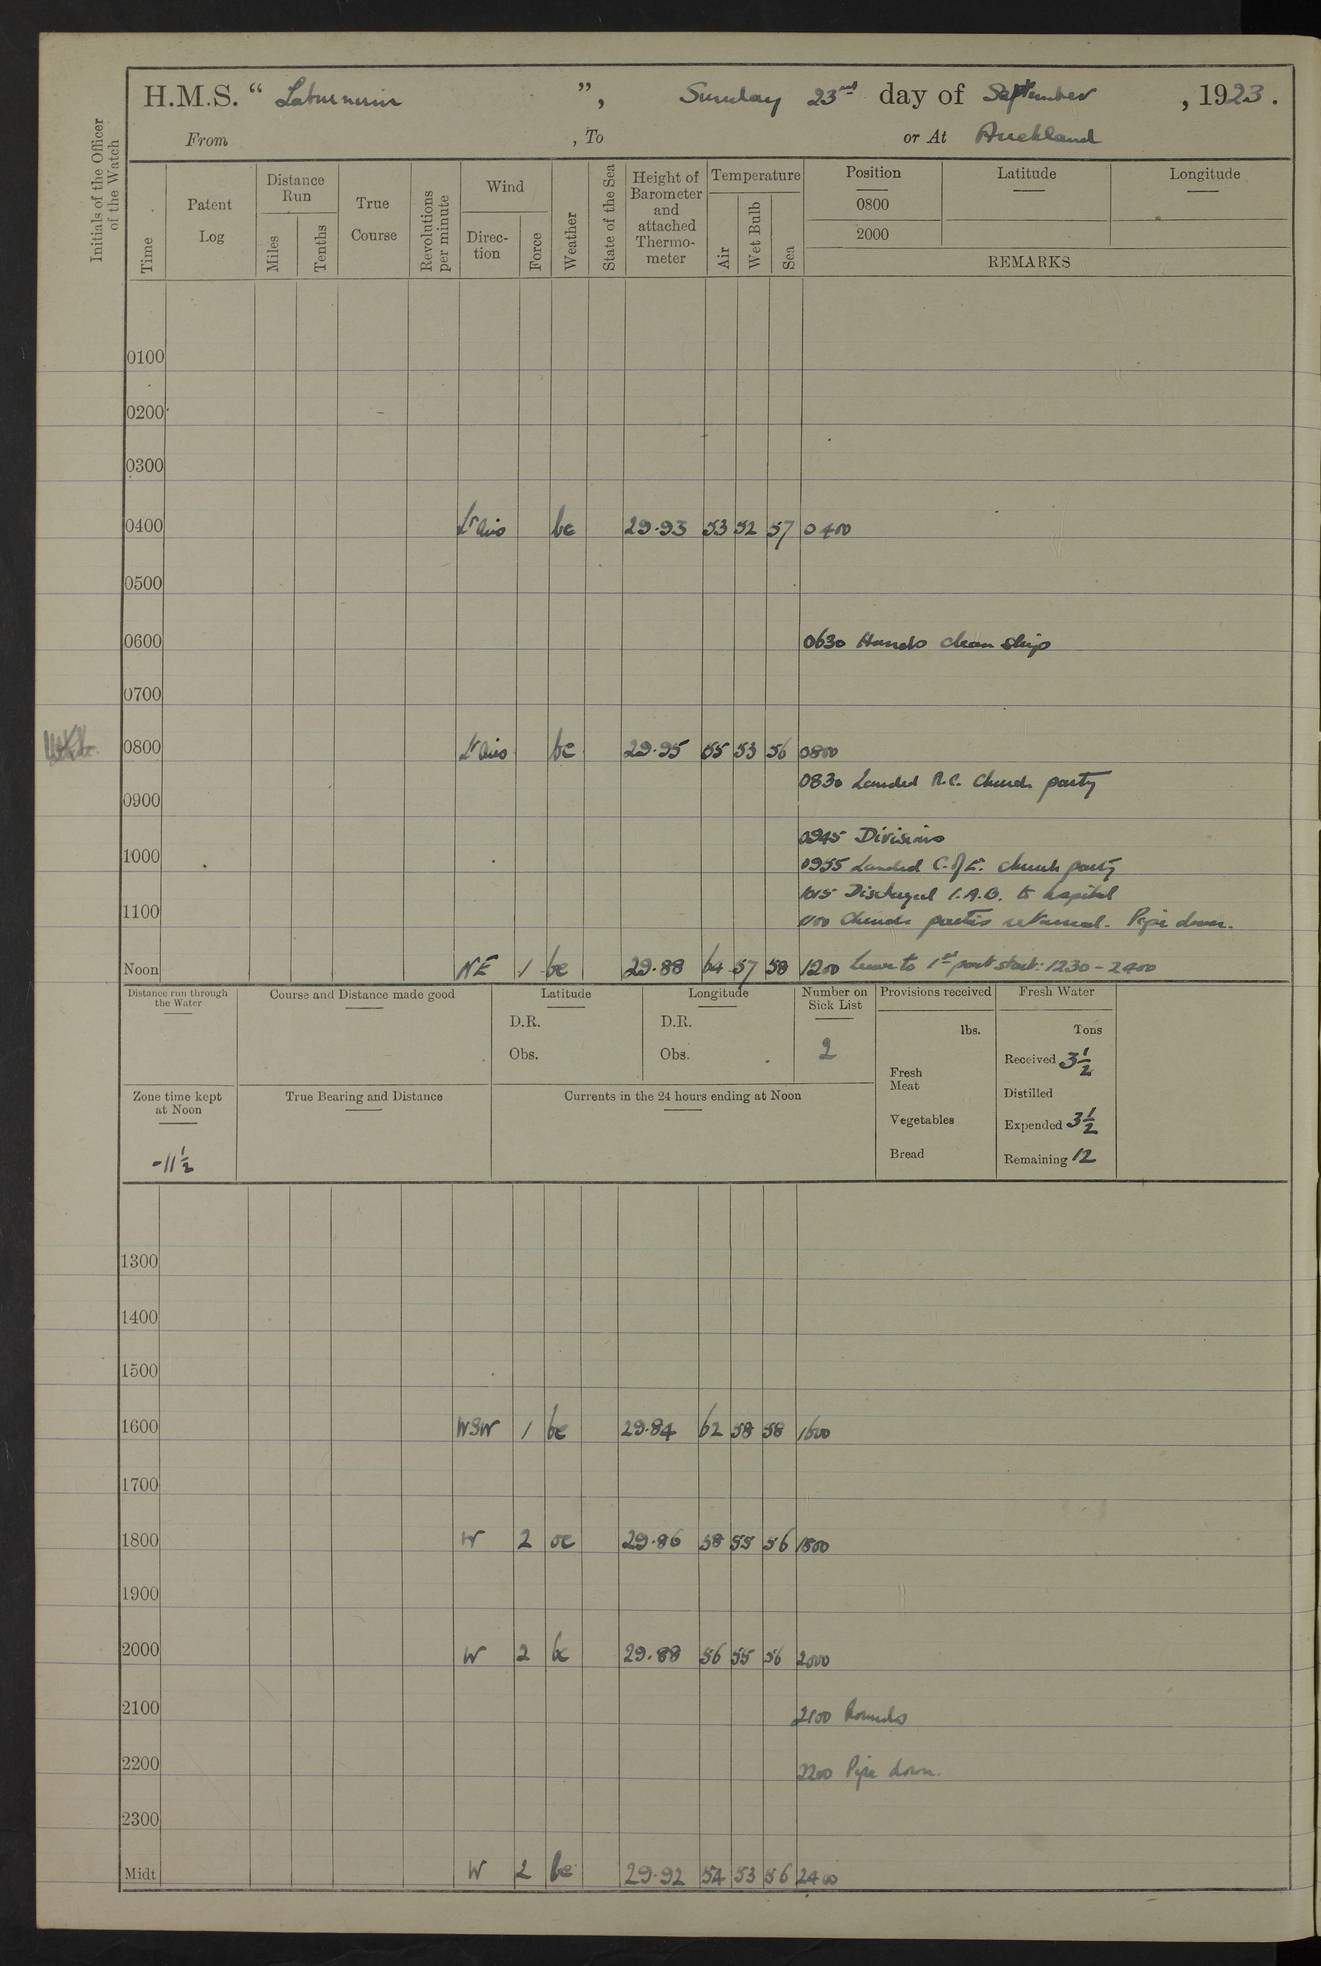 H.M.S. “ Laburnum ”, Sunday 23rd day of September , 1923.
From , To or At Auckland
Initials of the Officer of the Watch
Time
Patent Log
Distance Run
Miles
Tenths
True Course
Revolutions per minute
Wind
Direc-tion
Force
Weather
State of the Sea
Height of Barometer and attached Thermo-meter
Temperature
Air
Wet Bulb
Sea
Position
0800
2000
Latitude
Longitude
REMARKS
0100
0200
0300
0400 Lt airs bc 29.93 53 52 57 0400
0500
0600 0630 Hands clean ship
0700
0800 Lt airs bc 29.95 55 53 56 0800
0830 Landed R.C. Church party
0900
0945 Divisions
1000 0955 Landed C. of E. church party
1015 Discharged 1.A.B. to hospital
1100 1100 Church parties returned. Pipe down.
Noon NE 1 bc 29.88 64 57 58 1200 Leave to 1st part starbd: 1230 - 2400
Distance run through the Water
Course and Distance made good
Latitude
D.R.
Obs.
Longitude
D.R.
Obs.
Number on Sick List
2
Provisions received
lbs.
Fresh Meat
Vegetables
Bread
Fresh Water
Tons
Received 3½
Distilled
Expended 3½
Remaining 12
Zone time kept at Noon
-11½
True Bearing and Distance
Currents in the 24 hours ending at Noon
1300
1400
1500
1600 WSW 1 bc 29.84 62 58 58 1600
1700
1800 W 2 oc 29.86 58 55 56 1800
1900
2000 W 2 bc 29.88 56 55 56 2000
2100 2100 Rounds
2200 2200 Pipe down.
2300
Midt W 2 bc 29.92 54 53 56 2400